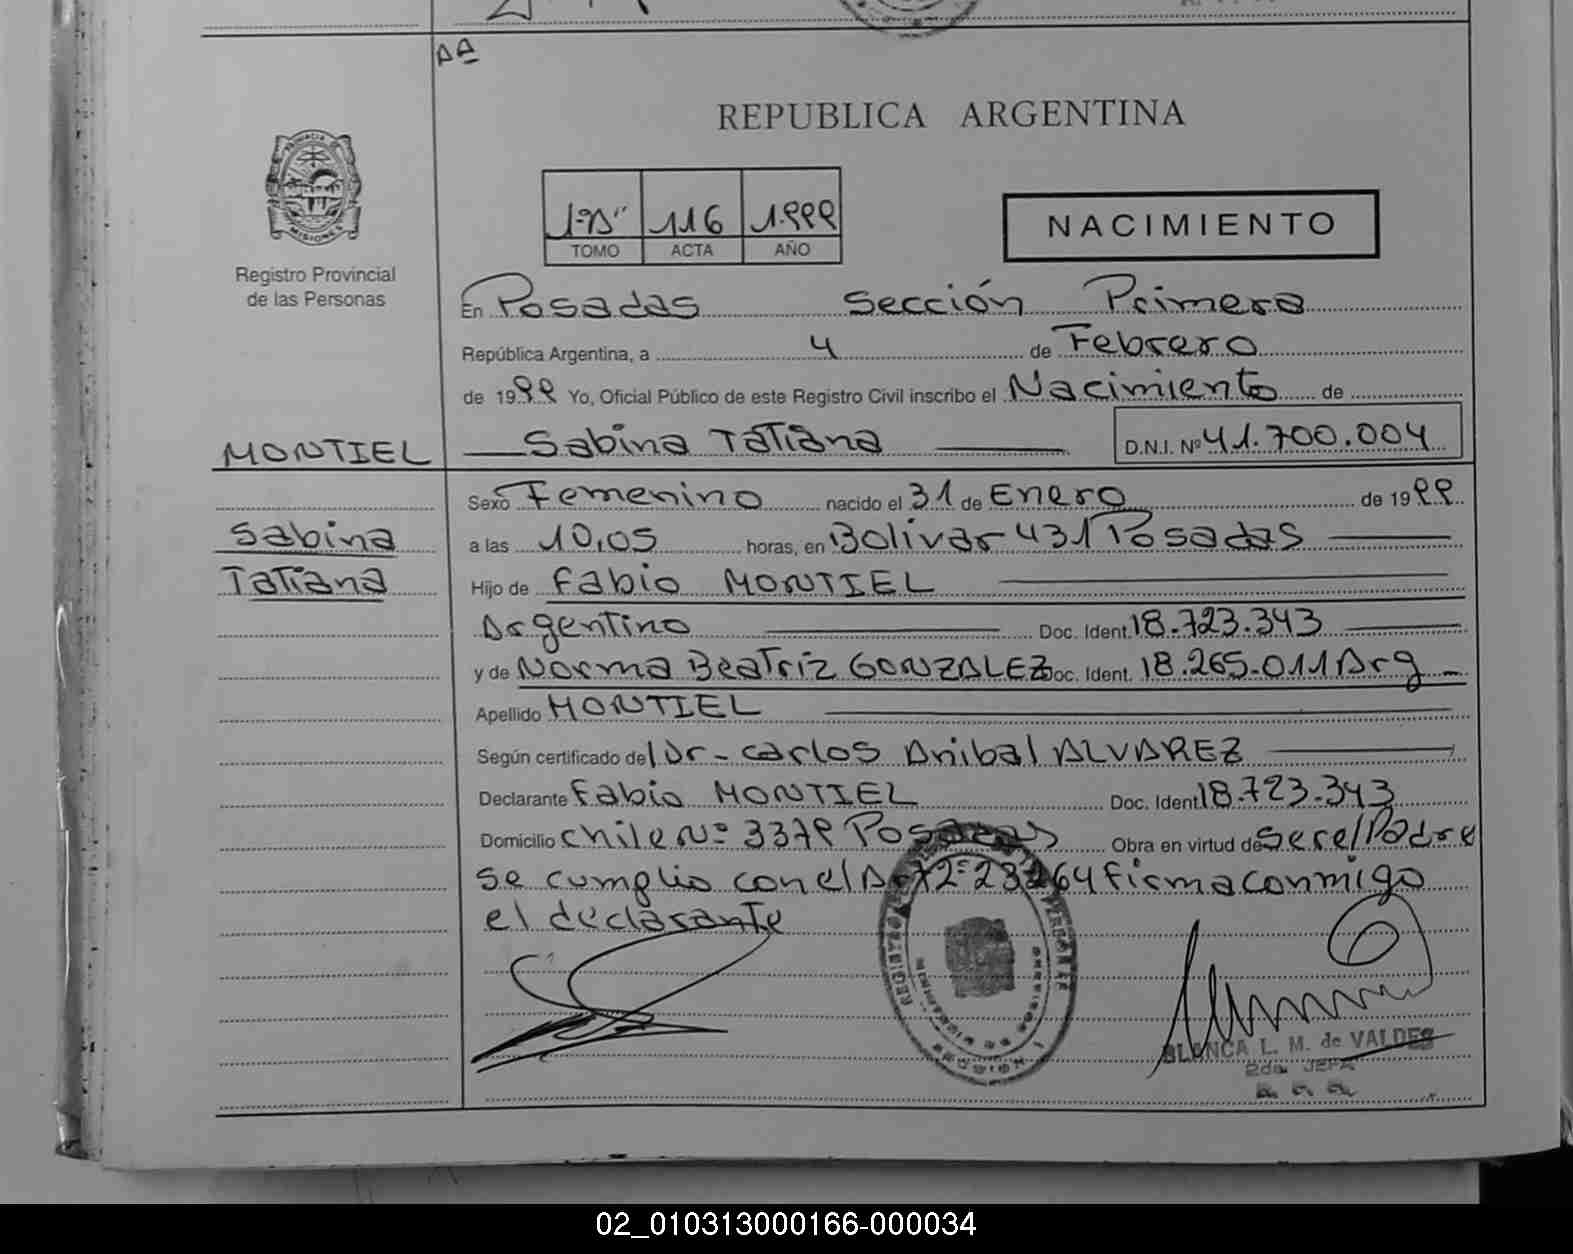 AA
REPUBLICA ARGENTINA
PROVINCIA DE
MISIONES
Registro Provincial
de las Personas
1º"D" 116 1.999
TOMO ACTA AÑO
NACIMIENTO
En Posadas Sección Primera
República Argentina, a 4 de Febrero
de 1999 Yo, Oficial Público de este Registro Civil inscribo el Nacimiento de
MONTIEL
Sabina Tatiana D.N.I. Nº 41.700.004
Sabina
Tatiana
Sexo Femenino nacido el 31 de Enero de 1999
a las 10,05 horas, en Bolivar 431 Posadas
Hijo de Fabio MONTIEL
Argentino Doc. Ident. 18.723.343
y de Norma Beatriz GONZALEZ Doc. Ident. 18.265.011 Arg
Apellido MONTIEL
Según certificado del Dr- Carlos Anibal ALVAREZ
Declarante Fabio MONTIEL Doc. Ident. 18.723.343
Domicilio Chile Nº 3379 Posadas Obra en virtud de ser el Padre
se cumplio con el Art 2º 23264 firma conmigo
el declarante
BLANCA L. M. de VALDES
2da. JEFA
02_010313000166-000034